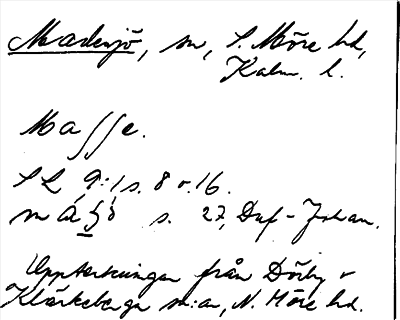 Madesjö, sn, S. Möre hd,
Kalm. l.
Masse.
SL 9:1 s. 8 o. 16.
s. 27,
Uppteckningar från Dörby o
Kläckeberga sn:ar, N. Möre hd.